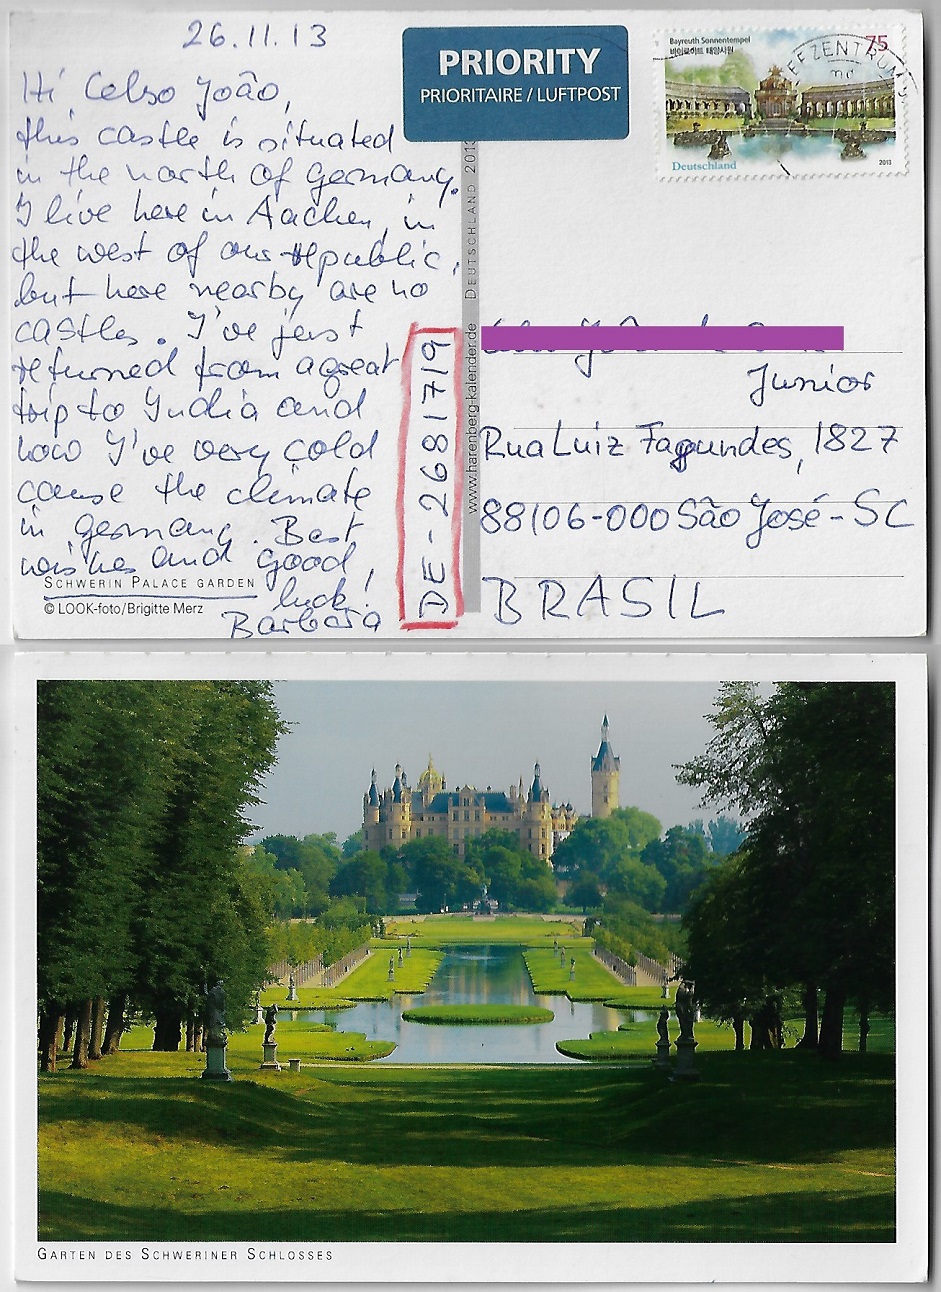 26.11.13
Hi, Celso João,
this castle is situated
in the north of Germany.
I live here in Aachen, in
the west of our republic,
but here nearby are no
castles. I've just
returned from a great
trip to India and
now I've very cold
cause the climate
in Germany. Best
wishes and good
luck!
Barbara
SCHWERIN PALACE GARDEN
© LOOK-foto/Brigitte Merz
PRIORITY
PRIORITAIRE / LUFTPOST
DE-2681719
www.harenberg-kalender.de DEUTSCHLAND 2013
Bayreuth Sonnentempel
바이로이트 태양사원
75
Deutschland
2013
EFZENTRUM
Junior
Rua Luiz Fagundes, 1827
88106-000 São José-SC
BRASIL
GARTEN DES SCHWERINER SCHLOSSES